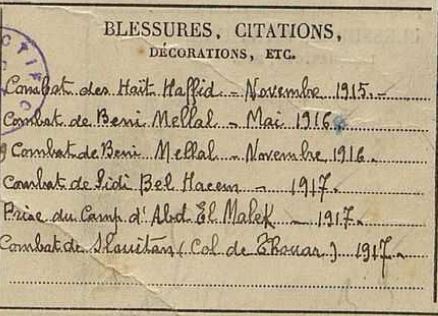 BLESSURES, CITATIONS,
DÉCORATIONS, ETC.
Combat des Haït Haffid - Novembre 1915.-
Combat de Beni Mellal - Mai 1916
Combat de Beni Mellal - Novembre 1916.
Combat de Sidi Bel Hacem - 1917.
Prise du Camp d'Abd El Malek - 1917.
Combat de (Col de Thouar) 1917.